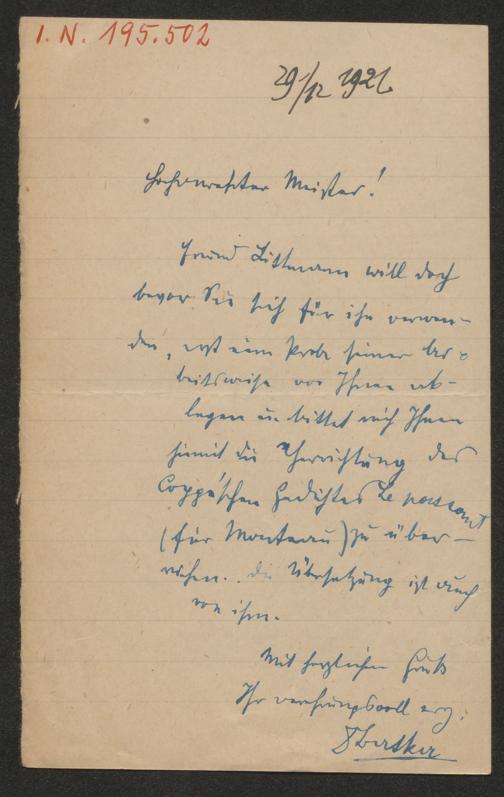 I. N. 195.502
29/12 1921.
Hochverehrter Meister!
Freund Littmann will doch
bevor Sie sich für ihn verwen-
den, erst eine Probe seiner Ar-
beitsweise vor Ihnen ab-
legen u. bittet mich Ihnen
hiemit die Herrichtung des
Coppé'schen Gedichtes Le passant
(für Monteau) zu über-
reichen. Die Übersetzung ist auch
von ihm.
Mit herzlichem Gruß
Ihr verehrungsvoll erg.